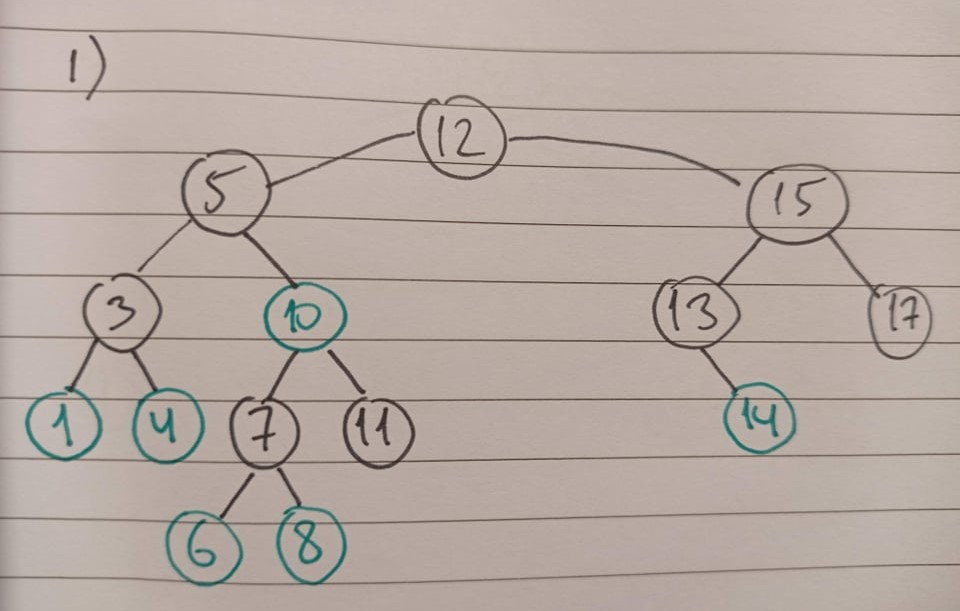 1)
12
5 15
3 10 13 17
1 4 7 11 14
6 8